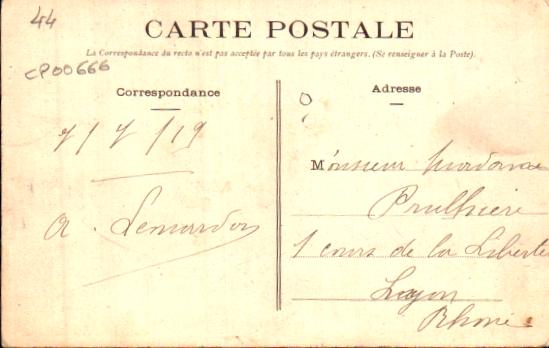 44
CARTE POSTALE
La Correspondance du recto n'est pas acceptée par tous les pays étrangers. (Se renseigner à la Poste).
CP00666
Correspondance
Adresse
7/7/19
Monsieur Madame
A.
1 cours de la Liberté
Lyon
Rhône